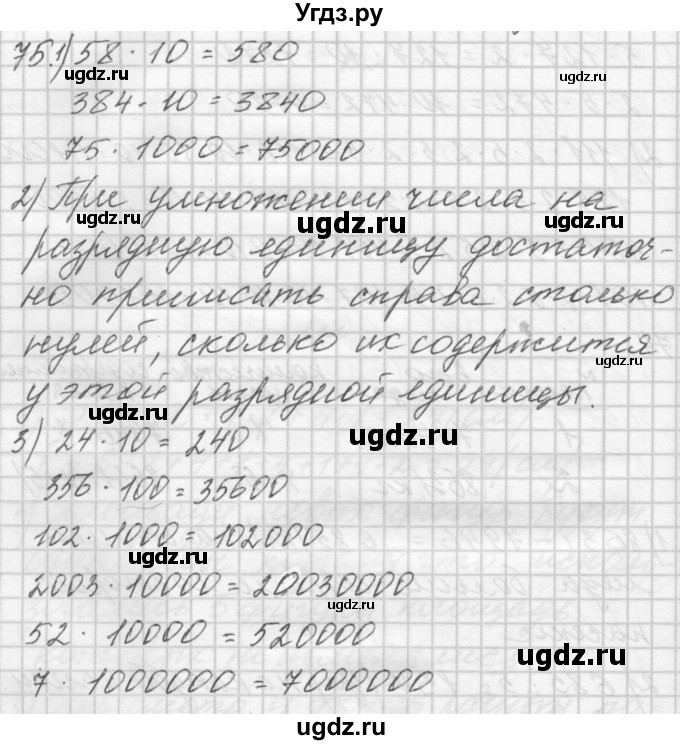 Угдз.ру
75.1) 58 · 10 = 580
384 · 10 = 3840
75 · 1000 = 75000
2) При умножении числа на
разрядную единицу достаточ-
но приписать справа столько
нулей, сколько их содержится
у этой разрядной единицы.
3) 24 · 10 = 240
356 · 100 = 35600
102 · 1000 = 102000
2003 · 10000 = 20030000
52 · 10000 = 520000
7 · 1000000 = 7000000
ugdz.ru
ugdz.ru
ugdz.ru
ugdz.ru
ugdz.ru
ugdz.ru
ugdz.ru
ugdz.ru
ugdz.ru
ugdz.ru
ugdz.ru
ugdz.ru
ugdz.ru